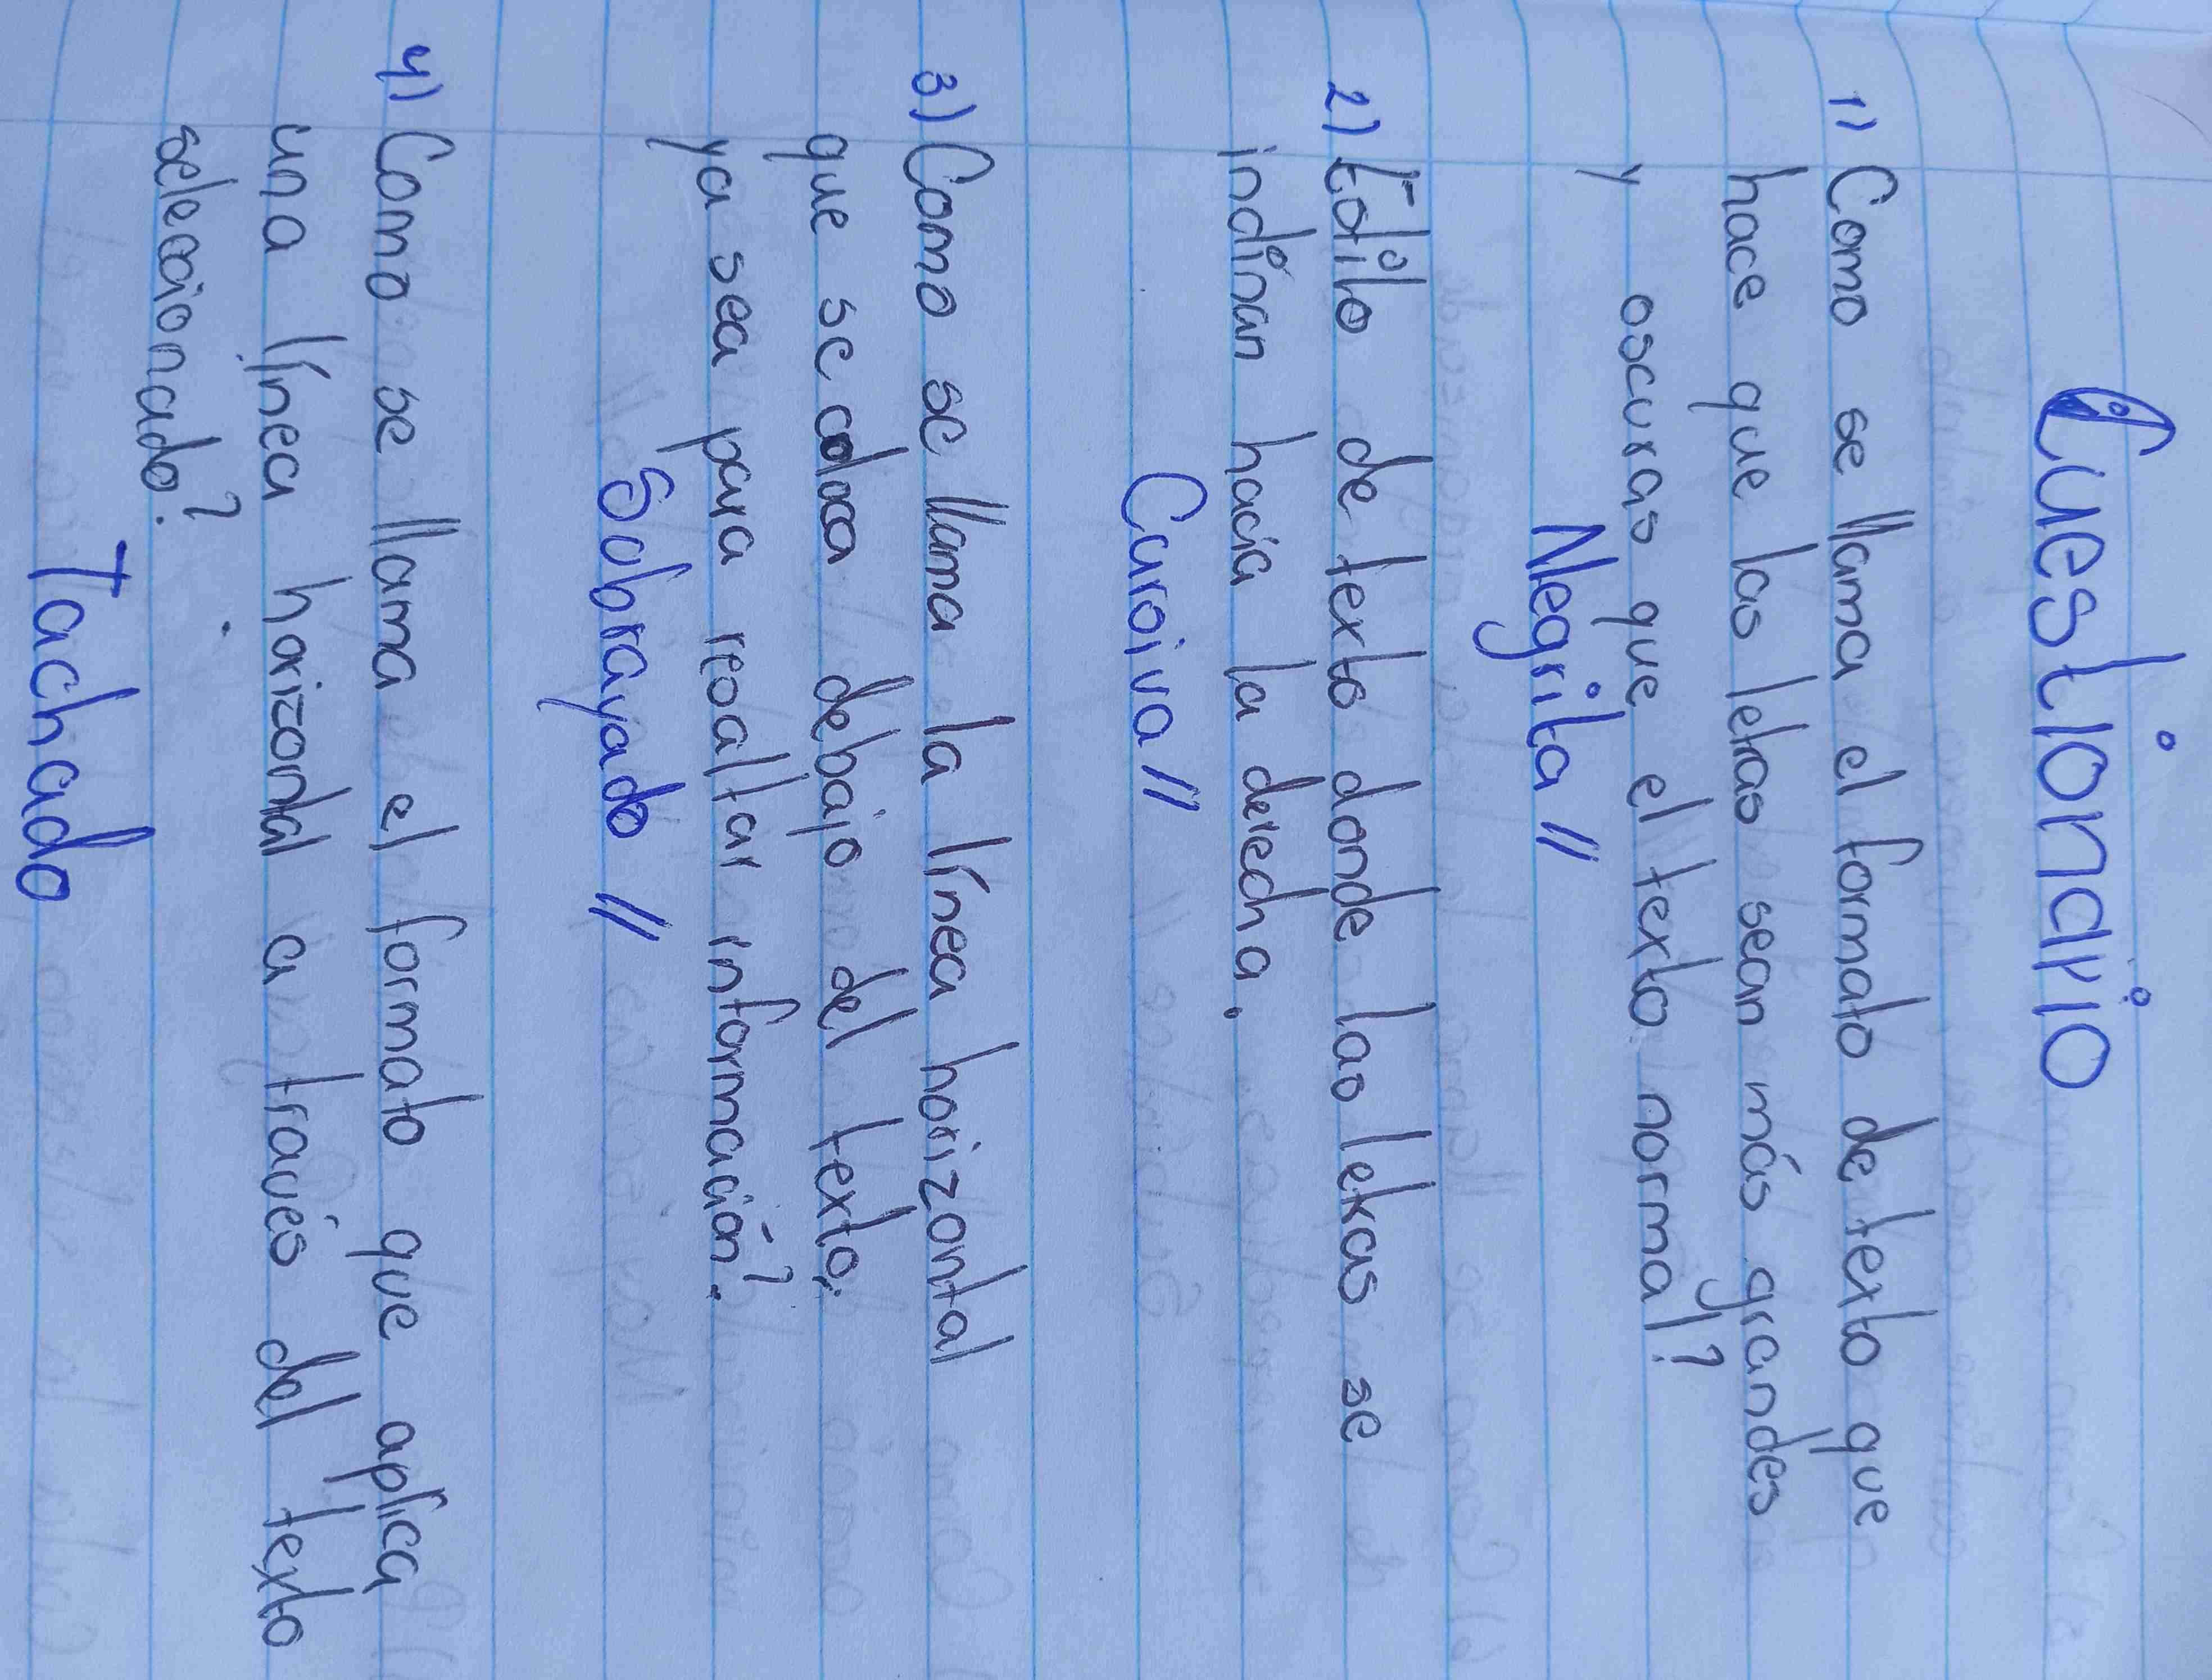 Cuestionario
1) Como se llama el formato de texto que
hace que las letras sean más grandes
y oscuras que el texto normal?
Negrita //
2) Estilo de texto donde las letras se
inclinan hacia la derecha.
Cursiva //
3) Como se llama la línea horizontal
que se coloca debajo del texto,
ya sea para resaltar información?
Subrayado //
4) Como se llama el formato que aplica
una línea horizontal a través del texto
seleccionado?
Tachado